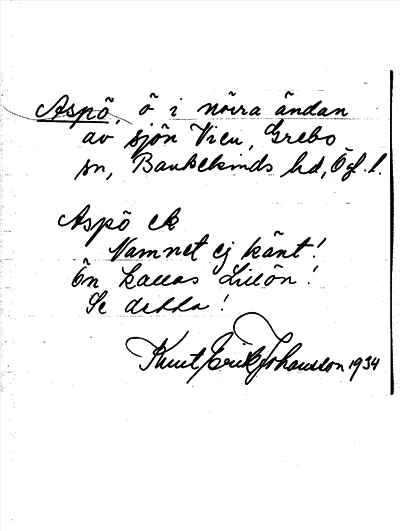 Aspö, ö i norra ändan
av sjön Vien, Grebo
sn, Bankekinds hd, Ög. l.
Aspö ek
Namnet ej känt!
Ön kallas Lillön!
Se detta!
Knut Erik Johansson 1934